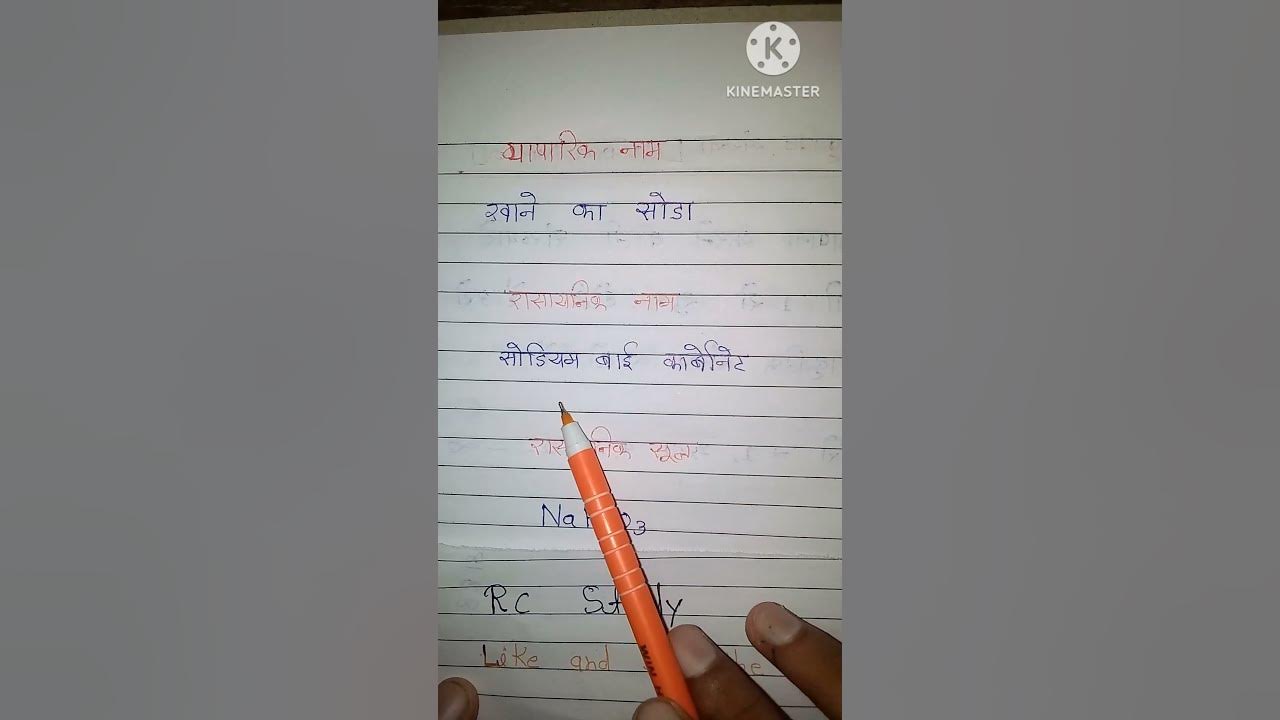 KINEMASTER
व्यापारिक नाम
खाने का सोडा
रासायनिक नाम
सोडियम बाई कार्बोनेट
सूत्र
RC
Like and